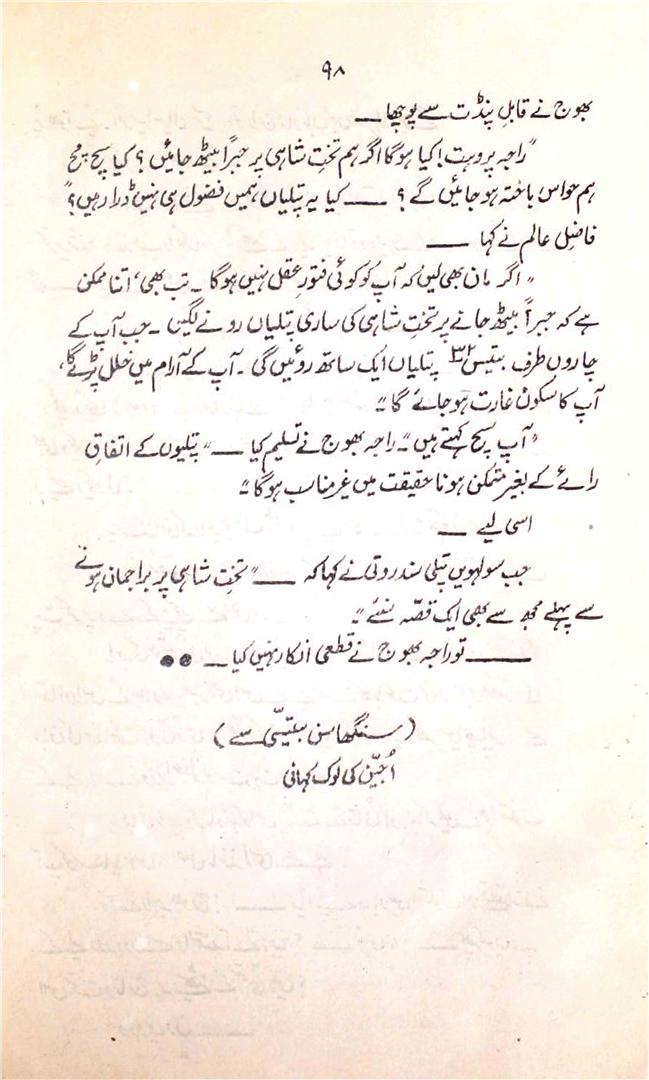 ۹۸
بھوج نے قابلِ پنڈت سے پوچھا ——
"راجہ پروہت! کیا ہوگا اگر ہم تختِ شاہی پر جبراً بیٹھ جائیں؟ کیا سچ مچ
ہم حواس باختہ ہو جائیں گے؟ —— کیا یہ پتلیاں ہمیں فضول ہی نہیں ڈرا رہیں؟"
فاضل عالم نے کہا ——
"اگر مان بھی لیں کہ آپ کو کوئی فتورِ عقل نہیں ہوگا۔ تب بھی، اتنا ممکن
ہے کہ جبراً بیٹھ جانے پر تختِ شاہی کی ساری پتلیاں رونے لگیں۔ جب آپ کے
چاروں طرف بتیس ۳۲ پتلیاں ایک ساتھ روئیں گی۔ آپ کے آرام میں خلل پڑے گا،
آپ کا سکون غارت ہو جائے گا"۔
"آپ سچ کہتے ہیں"۔ راجہ بھوج نے تسلیم کیا —— "پتلیوں کے اتفاقِ
رائے کے بغیر متمکن ہونا حقیقت میں غیر مناسب ہوگا"۔
اسی لیے ——
جب سولہویں پتلی سندروتی نے کہا کہ —— "تختِ شاہی پر براجمان ہونے
سے پہلے مجھ سے بھی ایک قصّہ سنئے"۔
—— تو راجہ بھوج نے قطعی انکار نہیں کیا —— ●●
(سنگھاسن بتیسّی سے)
اُجیّن کی لوک کہانی